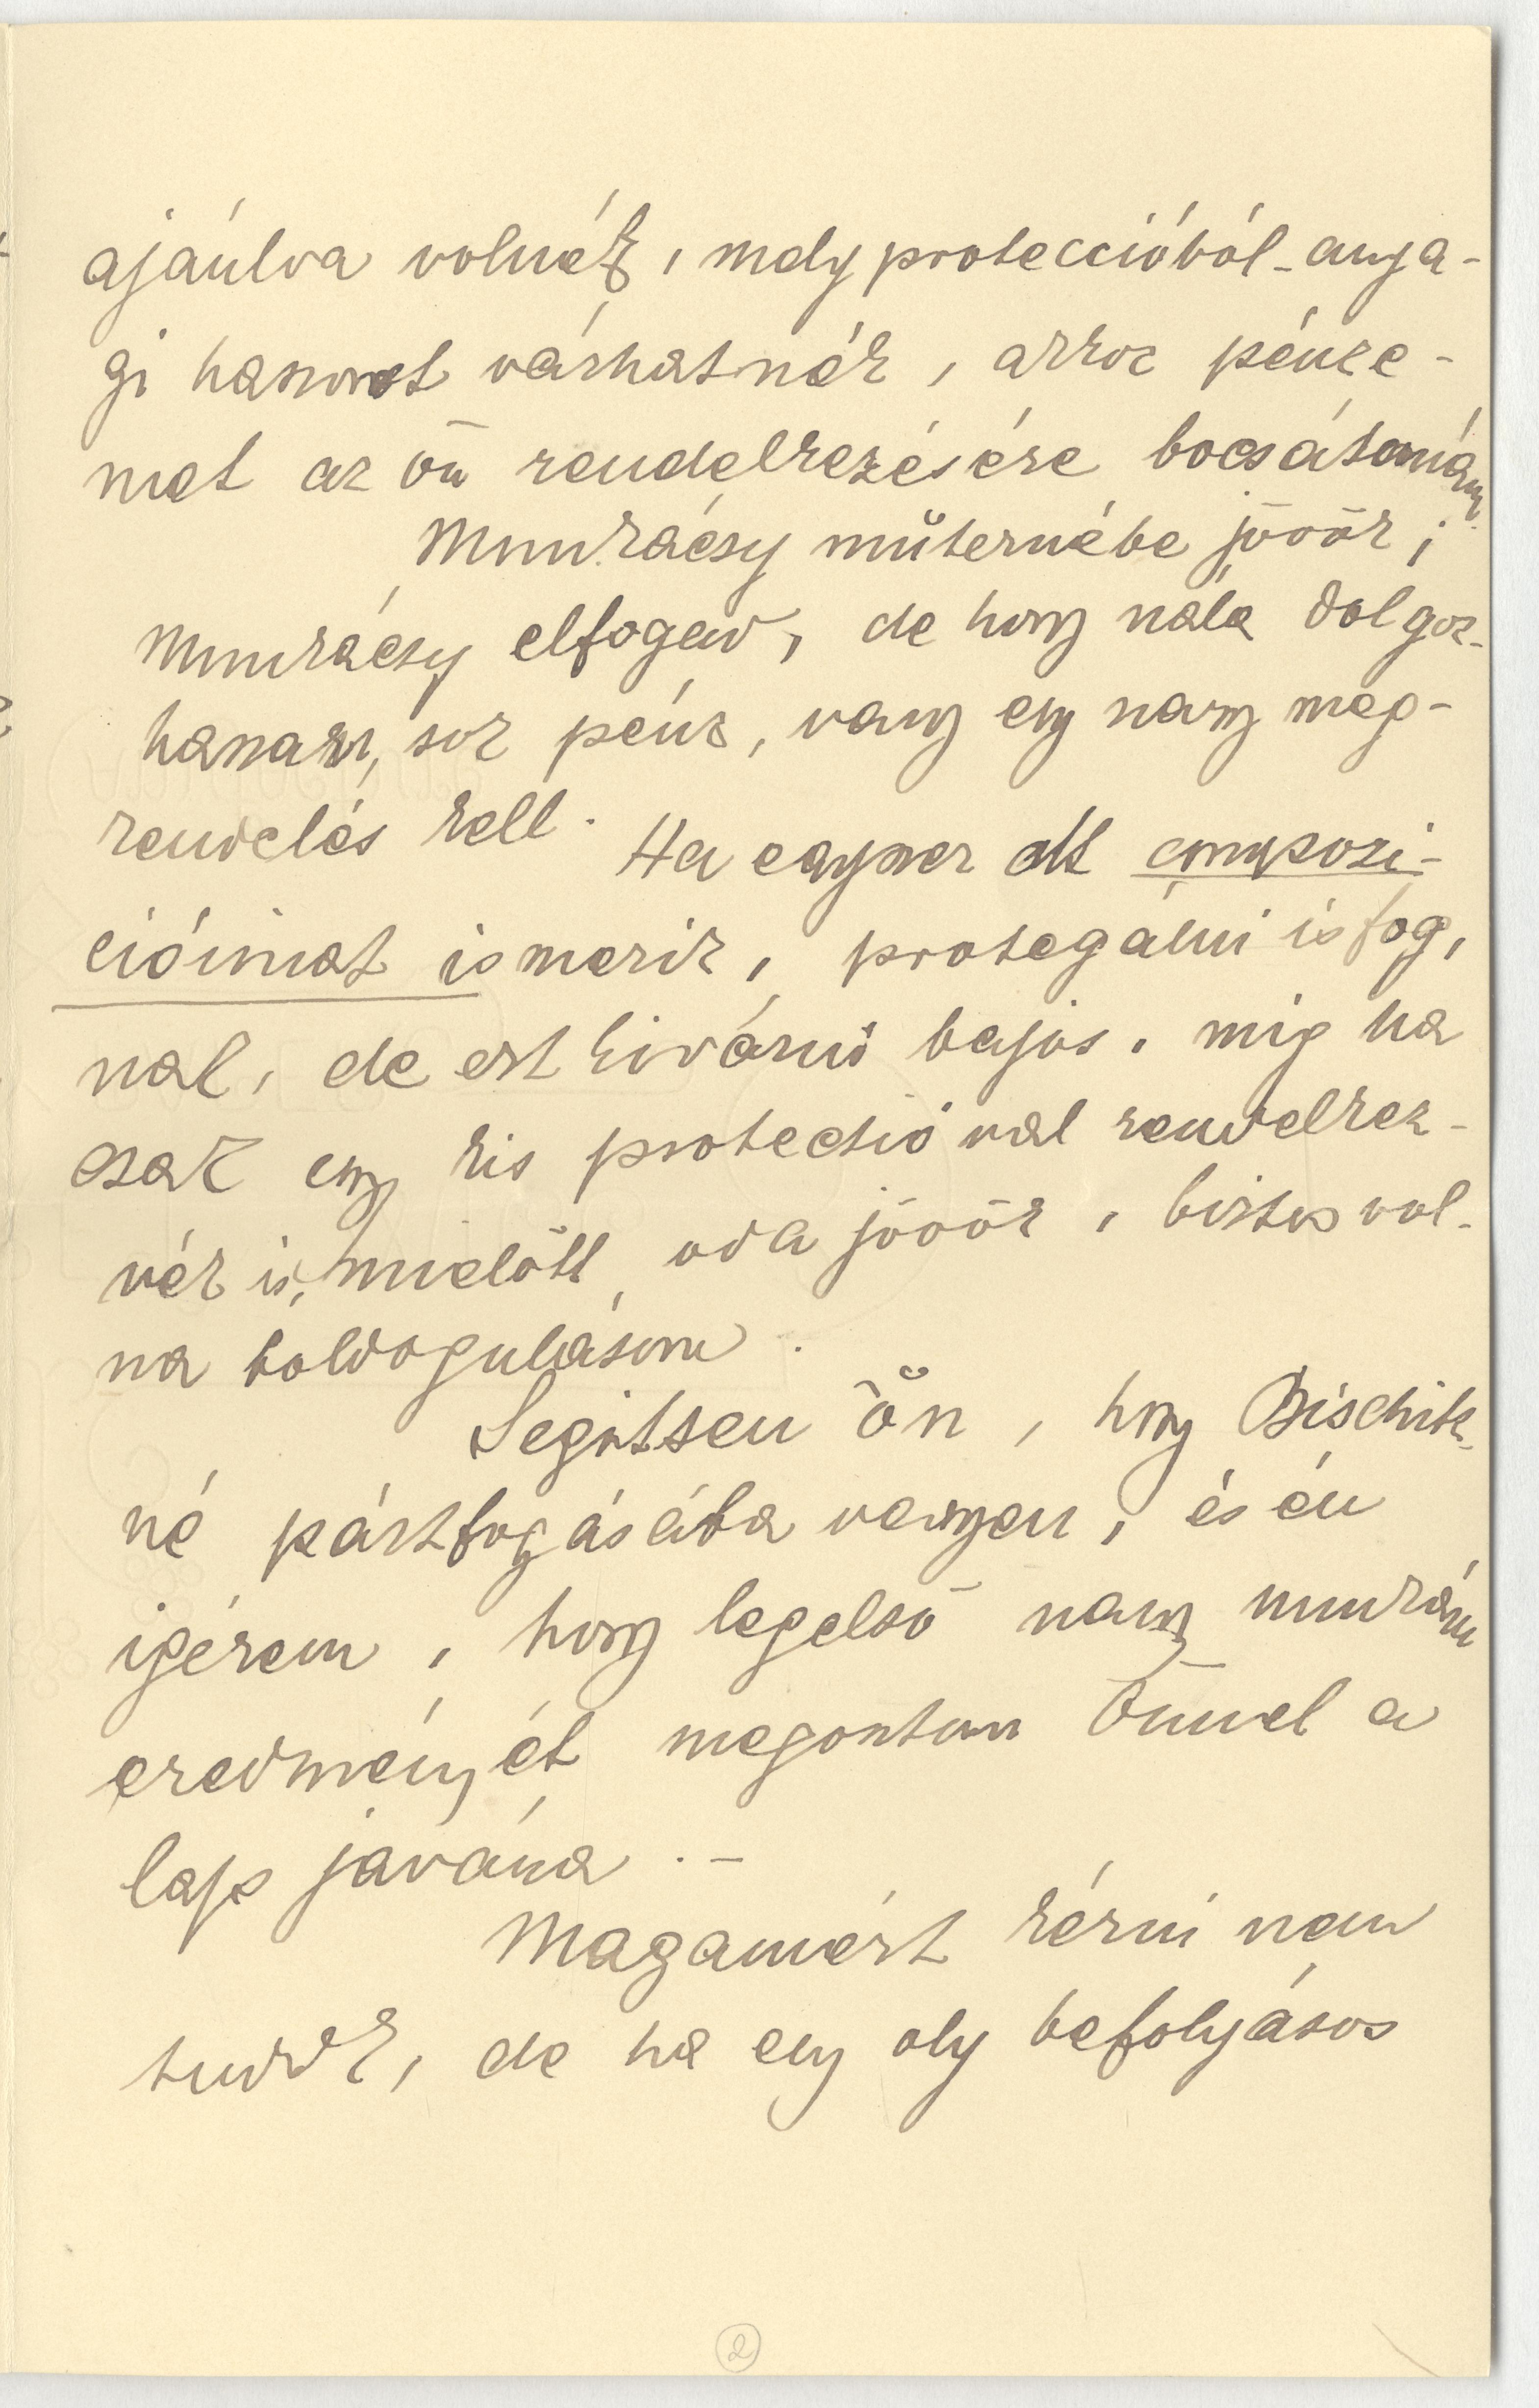 ajánlva volnék, mely proteccióból - anya-
gi hasznot várhatnék, akkor pénze-
met az ön rendelkezésére bocsátanám.
Munkácsy műtermébe jövök;
Munkácsy elfogad, de hogy nála dolgoz-
hassam, sok pénz, vagy egy nagy meg-
rendelés kell. Ha egyszer ott compozi-
cióimat ismerik, protegálni is fog,
nak, de ezt kivárni bajos, mig ha
csak egy kis protectióval rendelkez-
nék is, mielőtt oda jövök, biztos vol-
na boldogulásom.
Segitsen Ön, hogy Bischitz-
né pártfogásába vegyen, és én
igérem, hogy legelső nagy munkám
eredményét megosztom Önnel a
lap javára. -
Magamért kérni nem
tudok, de ha egy oly befolyásos
2